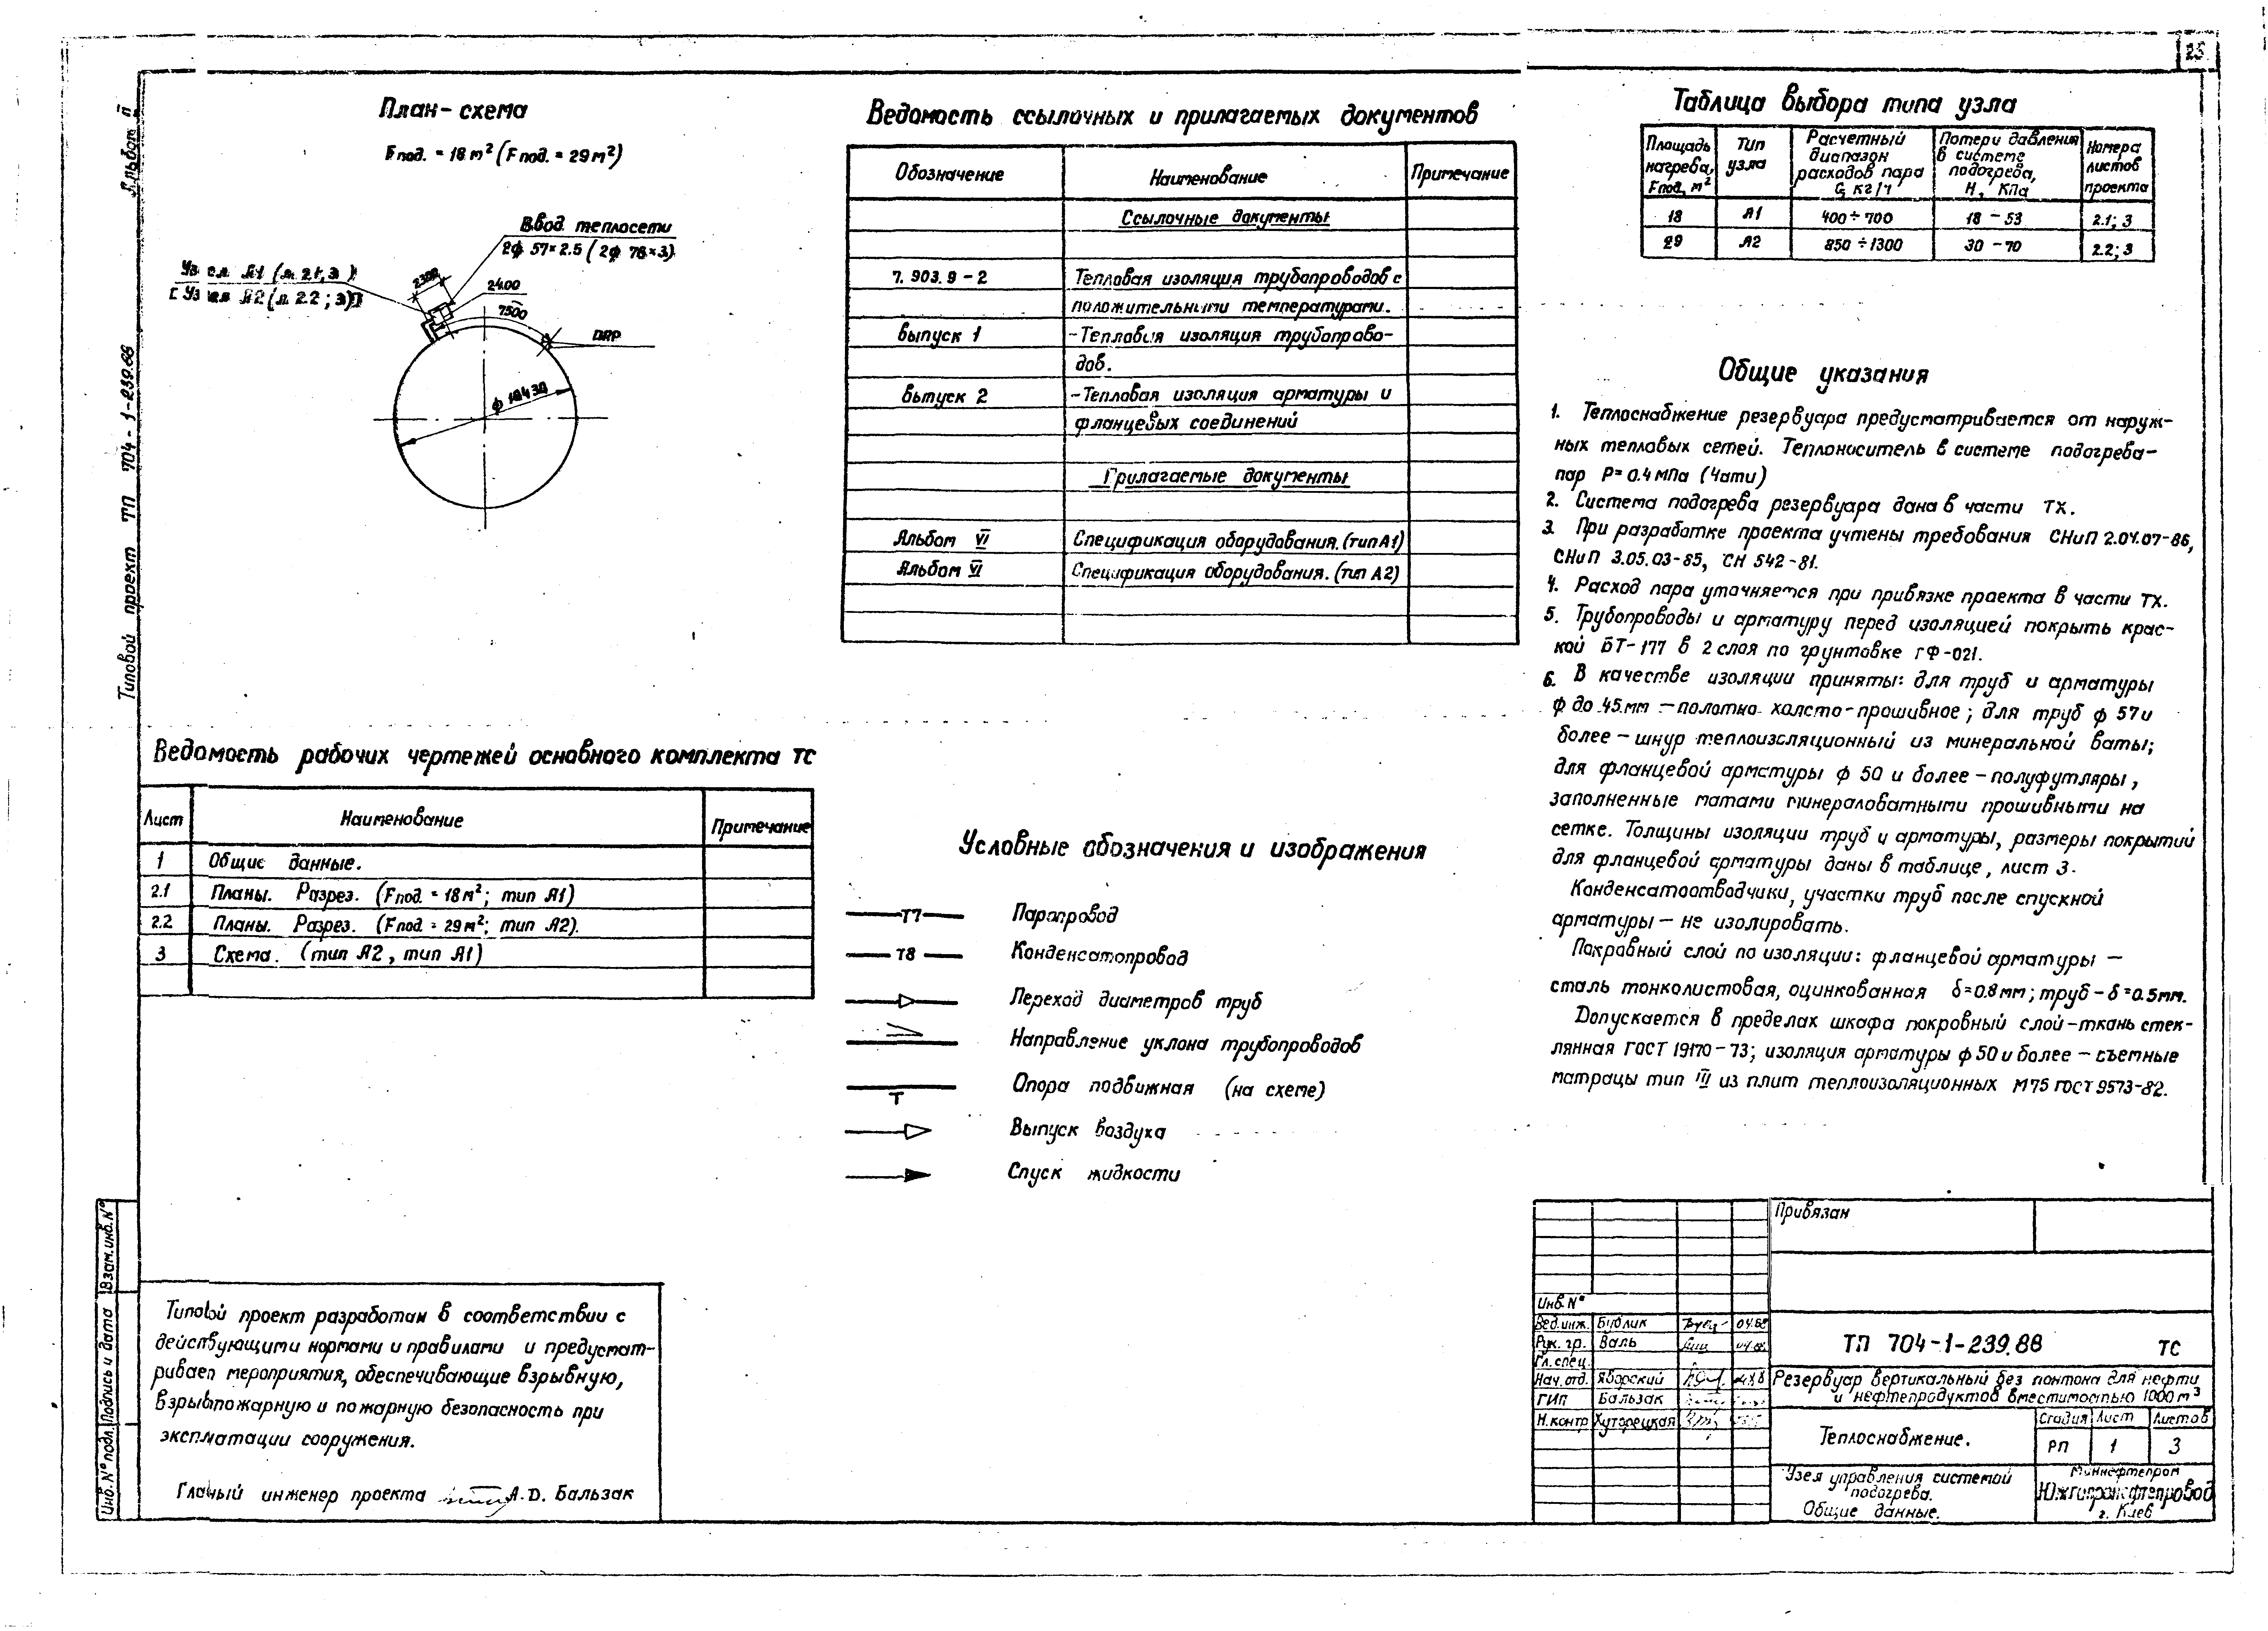 25
Альбом II
Типовой проект ТП 704-1-239.88
План-схема
Fпод. = 18 м² (Fпод. = 29 м²)
Ввод теплосети
2ф 57×2.5 (2ф 76×3)
Узел А1 (л. 2.1; 3)
[Узел А2 (л. 2.2; 3)]
2400
7500
DRP
ф 10430
Ведомость рабочих чертежей основного комплекта ТС
Лист Наименование Примечание
1 Общие данные.
2.1 Планы. Разрез. (Fпод. = 18 м²; тип А1)
2.2 Планы. Разрез. (Fпод. = 29 м²; тип А2).
3 Схема. (тип А2, тип А1)
Ведомость ссылочных и прилагаемых документов
Обозначение Наименование Примечание
Ссылочные документы
7.903.9-2 Тепловая изоляция трубопроводов с
положительными температурами.
выпуск 1 -Тепловая изоляция трубопрово-
дов.
выпуск 2 -Тепловая изоляция арматуры и
фланцевых соединений
Прилагаемые документы
Альбом VI Спецификация оборудования. (тип А1)
Альбом VI Спецификация оборудования. (тип А2)
Условные обозначения и изображения
Т7 Паропровод
Т8 Конденсатопровод
Переход диаметров труб
Направление уклона трубопроводов
Опора подвижная (на схеме)
Выпуск воздуха
Спуск жидкости
Таблица выбора типа узла
Площадь нагрева, Fпод, м² Тип узла Расчетный диапазон расходов пара G, кг/ч Потери давления в системе подогрева, Н, КПа Номера листов проекта
18 А1 400÷700 18-53 2.1; 3
29 А2 850÷1300 30-70 2.2; 3
Общие указания
1. Теплоснабжение резервуара предусматривается от наруж-
ных тепловых сетей. Теплоноситель в системе подогрева-
пар Р= 0.4 МПа (4ати)
2. Система подогрева резервуара дана в части ТХ.
3. При разработке проекта учтены требования СНиП 2.04.07-86,
СНиП 3.05.03-85, СН 542-81.
4. Расход пара уточняется при привязке проекта в части ТХ.
5. Трубопроводы и арматуру перед изоляцией покрыть крас-
кой БТ-177 в 2 слоя по грунтовке ГФ-021.
6. В качестве изоляции приняты: для труб и арматуры
ф до 45 мм - полотно холсто-прошивное; для труб ф 57 и
более - шнур теплоизоляционный из минеральной ваты;
для фланцевой арматуры ф 50 и более - полуфутляры,
заполненные матами минераловатными прошивными на
сетке. Толщины изоляции труб и арматуры, размеры покрытий
для фланцевой арматуры даны в таблице, лист 3.
Конденсатоотводчики, участки труб после спускной
арматуры - не изолировать.
Покровный слой по изоляции: фланцевой арматуры -
сталь тонколистовая, оцинкованная δ=0.8 мм; труб - δ=0.5мм.
Допускается в пределах шкафа покровный слой-ткань стек-
лянная ГОСТ 19170-73; изоляция арматуры ф 50 и более - съемные
матрацы тип III из плит теплоизоляционных М75 ГОСТ 9573-82.
Типовой проект разработан в соответствии с
действующими нормами и правилами и предусмат-
ривает мероприятия, обеспечивающие взрывную,
взрывопожарную и пожарную безопасность при
эксплуатации сооружения.
Главный инженер проекта А.D. Бальзак
Взам. инв. N°
Подпись и дата
Инв. N° подл.
Привязан
Инв. N°
Вед. инж. Бублик 04.88
Рук. гр. Валь 04.88
Гл. спец.
Нач. отд. Яворский
ГИП Бальзак
Н. контр Хуторецкая
ТП 704-1-239.88 ТС
Резервуар вертикальный без понтона для нефти
и нефтепродуктов вместимостью 1000 м³
Теплоснабжение.
Стадия Лист Листов
РП 1 3
Узел управления системой
подогрева.
Общие данные.
Миннефтепром
Южгипронефтепровод
г. Киев